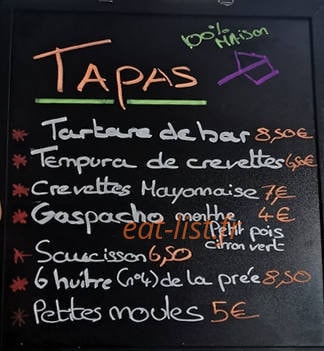 100% MAISON
TAPAS
* Tartare de bar 8,50€
* Tempura de crevettes 6,50€
* Crevettes Mayonnaise 7€
* Gaspacho menthe 4€
Petit pois
citron vert
eat-list.fr
* Saucisson 6,50
* 6 huître (n°4) de la prée 8,50
* Petites moules 5€